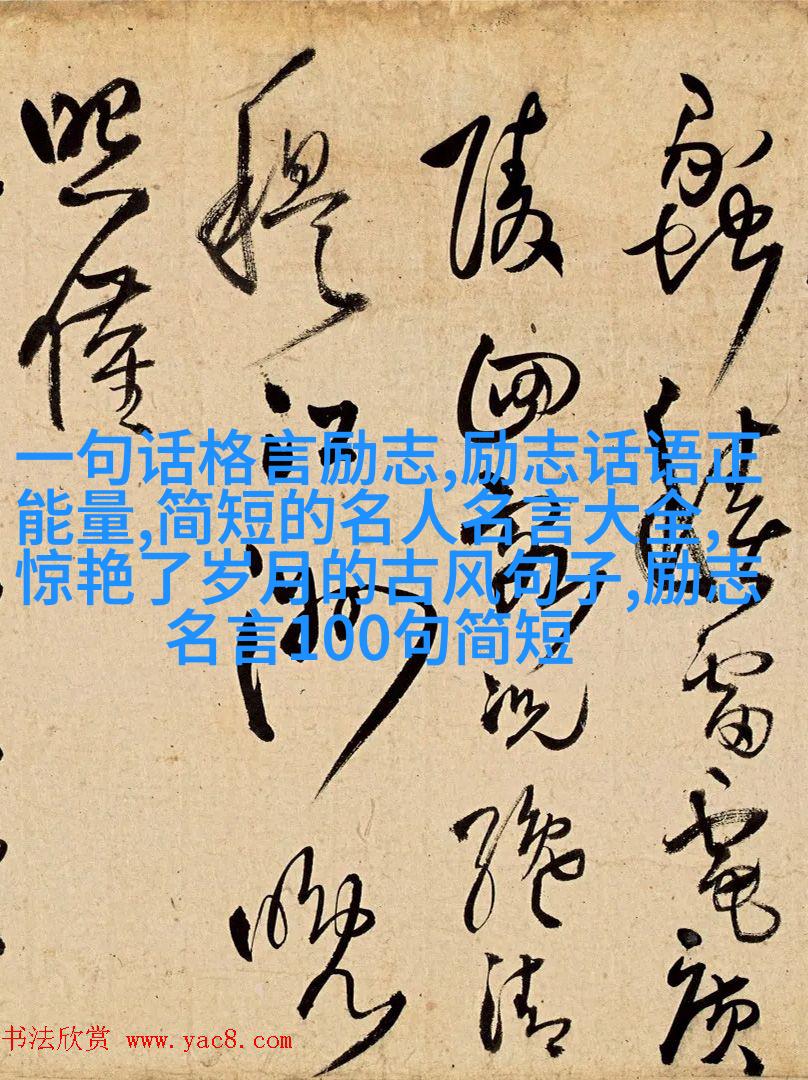 雷電廣
陵況絶清
江湖晚
照
一句话格言励志,励志话语正
能量,简短的名人名言大全,
惊艳了岁月的古风句子,励志
名言100句简短
书法欣赏 www.yac8.com